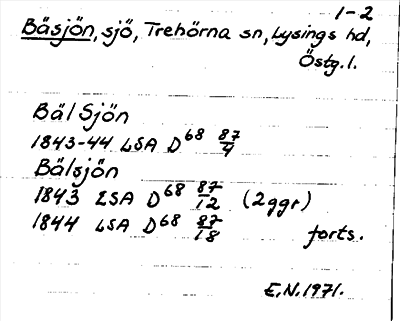 1-2
Båsjön, sjö, Trehörna sn, Lysings hd,
Östg. l.
Bäl Sjön
1843-44 LSA D68 87/4
Bälsjön
1843 LSA D68 87/12 (2ggr)
1844 LSA D68 87/18 forts.
E.N. 1971.